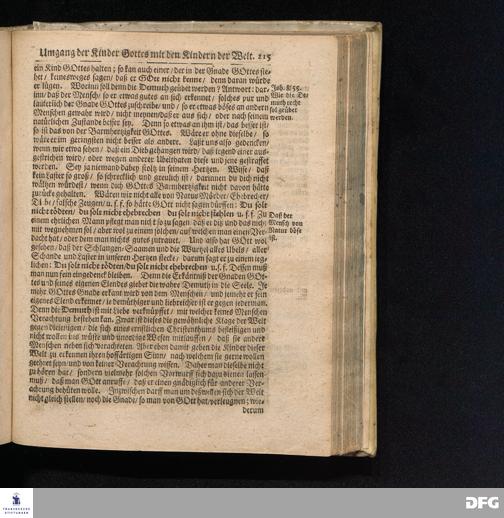 Umgang der Kinder Gottes mit den Kindern der Welt. 215
ein Kind GOttes halten; so kan auch einer/der in der Gnade GOttes ste-
het/ keinesweges sagen/ daß er GOtt nicht kenne/ denn daran würde
er lügen. Worinn soll denn die Demuth geübet werden? Antwort: dar-
inn/ daß der Mensch/ so er etwas gutes an sich erkennet/ solches pur und
läuterlich der Gnade GOttes zuschreibe/ und/ so er etwas böses an andern
Menschen gewahr wird/ nicht meynen/ daß er aus sich/ oder nach seinem
natürlichen Zustande besser sey. Denn so etwas an ihm ist/ das besser ist/
so ist das von der Barmhertzigkeit GOttes. Wäre er ohne dieselbe/ so
wäre er im geringsten nicht besser als andere. Laßt uns also gedencken/
wenn wir etwa sehen/ daß ein Dieb gehangen wird/ daß irgend einer aus-
gestrichen wird/ oder wegen anderer Ubelthaten diese und jene gestraffet
werden. Sey ja niemand dabey stoltz in seinem Hertzen. Wisse/ daß
kein Laster so groß/ so schrecklich und greulich ist/ darinnen du dich nicht
wältzen würdest/ wenn dich GOttes Barmhertzigkeit nicht davon hätte
zurücke gehalten. Wären wir nicht alle von Natur Mörder/ Ehebrecher/
Diebe/ falsche Zeugen/ u. s. f. so hätte GOtt nicht sagen dürffen: Du solt
nicht tödten/ du solt nicht ehebrechen/ du solt nicht stehlen u. s. f. Zu
einem ehrlichen Mann pflegt man nicht so zu sagen/ daß er diß und das nicht
mit wegnehmen sol/ aber wol zu einem solchen/ auf welchen man einen Ver-
dacht hat/ oder dem man nichts gutes zutrauet. Und also hat GOtt wol
gesehen/ daß der Schlangen-Saamen und die Wurtzel alles Ubels/ aller
Schande und Laster in unseren Hertzen stecke/ darum sagt er zu einem ieg-
lichen: Du solt nicht tödten/ du solt nicht ehebrechen u. s. f. Dessen muß
man nun sein eingedenck bleiben. Denn die Erkäntniß der Gnaden GOt-
tes und seines eigenen Elendes giebet die wahre Demuth in die Seele. Je
mehr GOttes Gnade erkant wird von dem Menschen/ und jemehr er sein
eigenes Elend erkennet/ ie demüthiger und liebreicher ist er gegen iederman.
Denn die Demuth ist mit Liebe verknüpffet/ mit welcher keines Menschen
Verachtung bestehen kan. Zwar ist dieses die gewöhnliche Klage der Welt
gegen diejenigen/ die sich eines ernstlichen Christenthums befleißigen und
nicht wollen das wüste und unordige Wesen mitlauffen/ daß sie andere
Menschen neben sich verachteten. Aber eben damit geben die Kinder dieser
Welt zu erkennen ihren hoffärtigen Sinn/ nach welchem sie gerne wollen
geehret seyn und von keiner Verachtung wissen. Daher man dieselbe nicht
zu hören hat/ sondern vielmehr solchen Vorwurff sich dazu dienen lassen
muß/ daß man GOtt anruffe/ daß er einen gnädiglich für anderer Ver-
achtung behüten wolle. Inzwischen darff man um deßwillen sich der Welt
nicht gleich stellen/ noch die Gnade/ so man von GOtt hat/ verleugnen; wie-
derum
Joh. 8/55.
Wie die De-
muth recht
sol geübet
werden.
Daß der
Mensch von
Natur böse
ist.
FRANCKESCHE
STIFTUNGEN
DFG